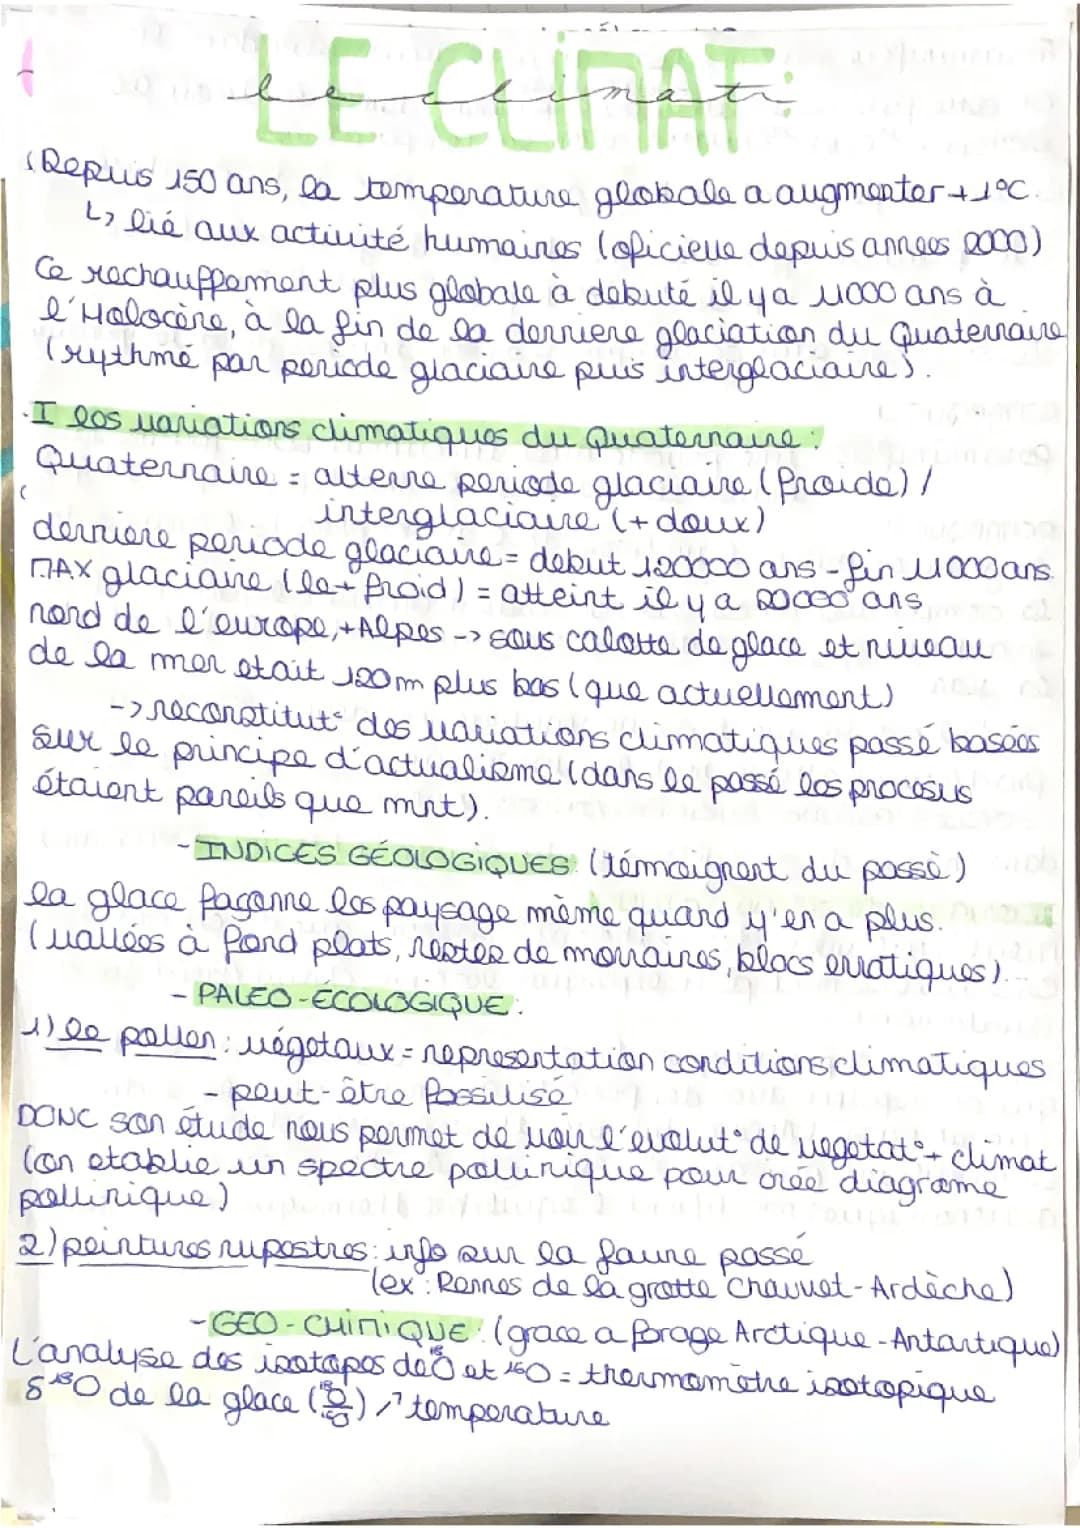 LE CLIMAT:
le climat:
Depuis 150 ans, la temperature globale a augmenter +1°C.
↳ lié aux activité humaines (oficielle depuis annees 2000)
Ce rechauffement plus globale à debuté il y a 11000 ans à
l'Holocène, à la fin de la derniere glaciation du Quaternaire
(rythmé par periode glaciaire puis interglaciaire).
I les variations climatiques du Quaternaire:
Quaternaire = alterne periode glaciaire (froide) /
interglaciaire (+ doux)
derniere periode glaciaire = debut 120000 ans - fin 11000 ans.
MAX glaciaire (le + froid) = atteint il y a 20000 ans
nord de l'europe, + Alpes -> sous calotte de glace et niveau
de la mer etait 120m plus bas (que actuellement)
-> reconstitut° des variations climatiques passé basées
sur le principe d'actualisme (dans le passé les procesus
étaient pareils que mtnt).
- INDICES GÉOLOGIQUES: (témoignent du passé)
la glace façonne les paysage même quand y'en a plus.
(vallées à fond plats, restes de morraines, blocs erratiques).
- PALEO-ÉCOLOGIQUE:
1) le pollen: végetaux = representation conditions climatiques
- peut-être fossilisé
DONC son étude nous permet de voir l'evolut° de vegetat° + climat
(on etablie un spectre pollinique pour créé diagrame
pollinique)
2) peintures rupestres: info sur la faune passé
(ex: Rennes de la grotte Chauvet-Ardèche)
- GEO-CHIMIQUE: (grace a forage Arctique-Antartique)
L'analyse des isotopes de ¹⁸O et ¹⁶O = thermomètre isotopique
δ¹⁸O de la glace (¹⁸O/¹⁶O) ↗ temperature